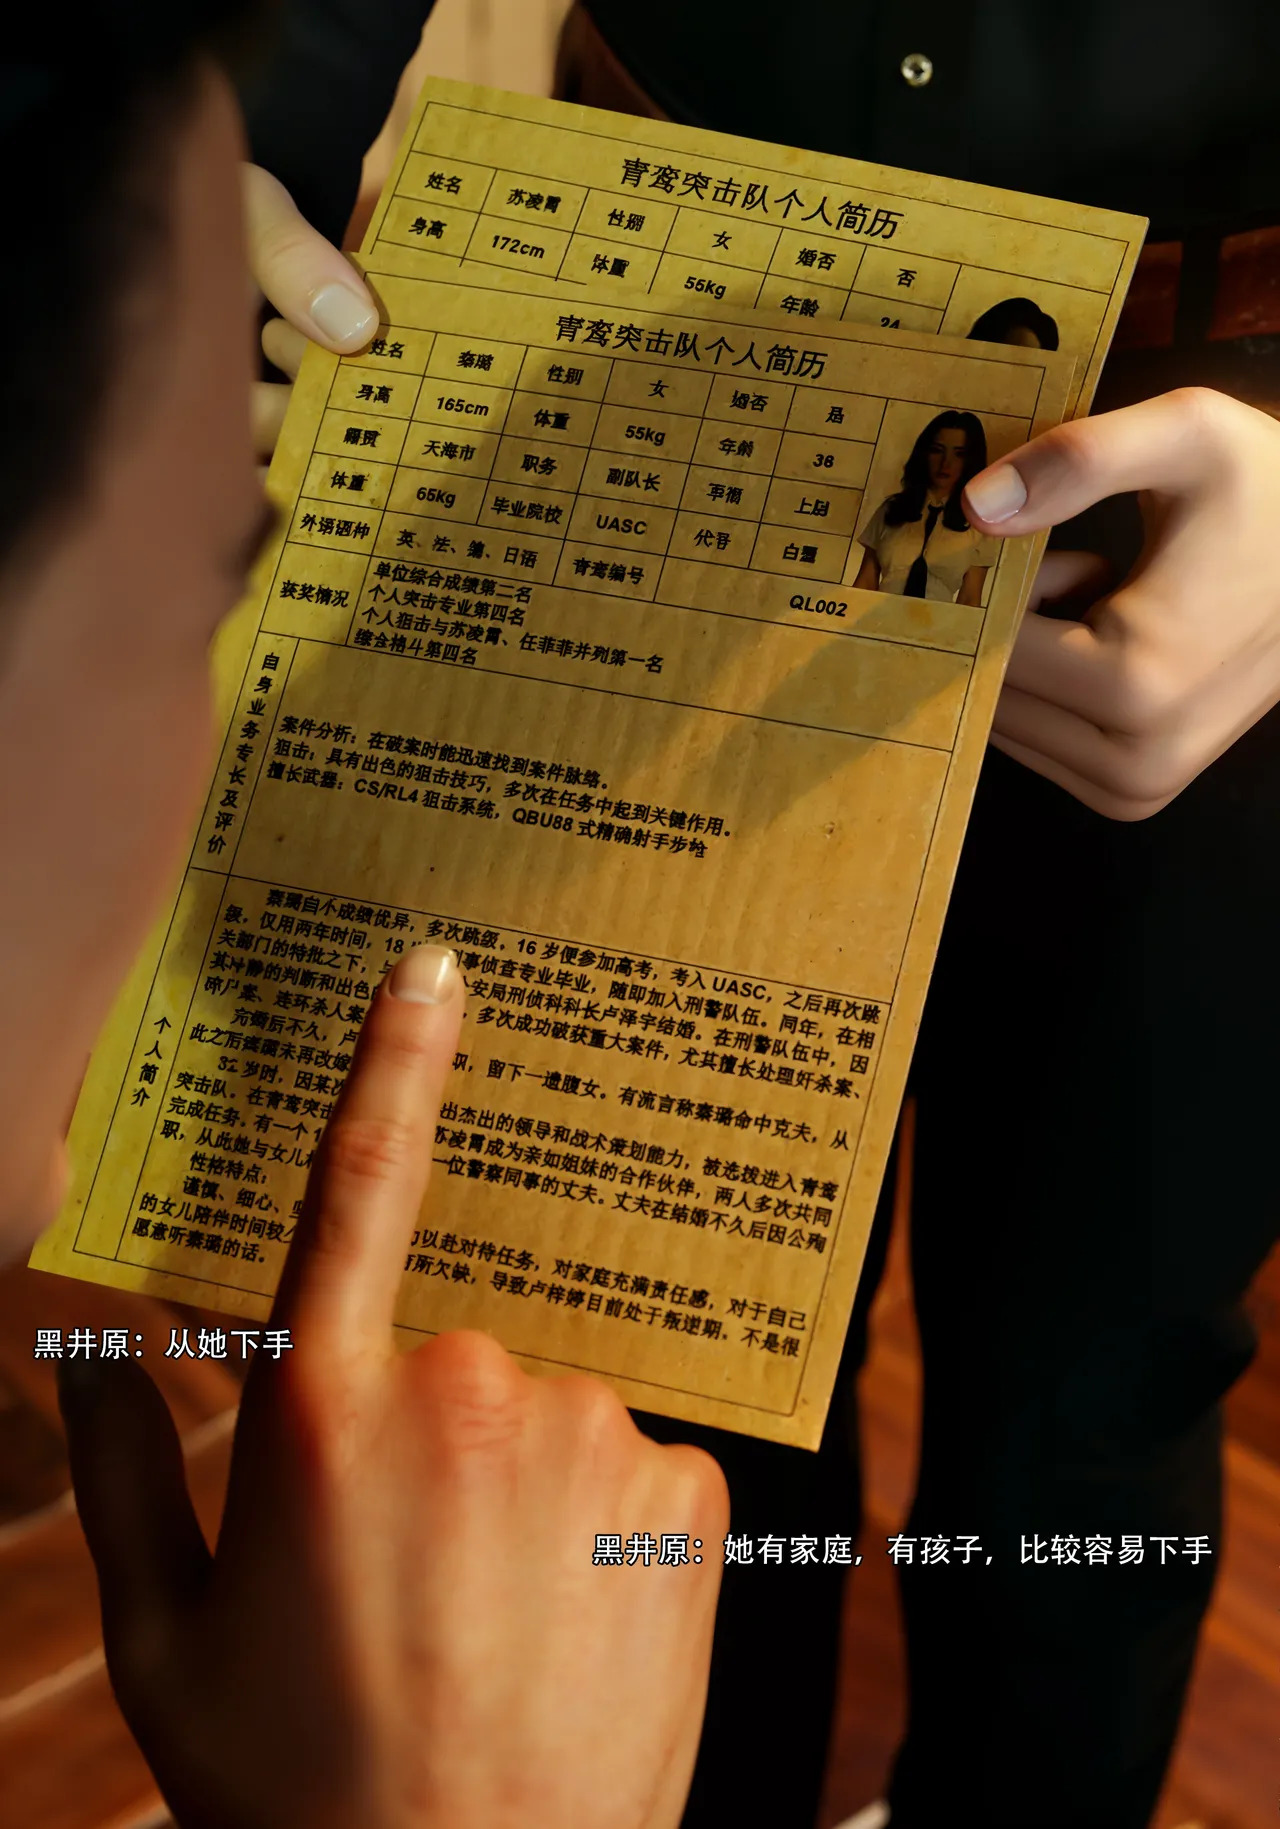 青鸾突击队个人简历
姓名 苏凌霄 性别 女 婚否 否
身高 172cm 体重 55kg 年龄 24
青鸾突击队个人简历
姓名 秦璐 性别 女 婚否 是
身高 165cm 体重 55kg 年龄 38
籍贯 天海市 职务 副队长 军衔 上尉
体重 65kg 毕业院校 UASC 代号
外语语种 英、法、德、日语 青鸾编号 QL002
获奖情况
单位综合成绩第二名
个人突击专业第四名
个人狙击与苏凌霄、任菲菲并列第一名
综合格斗第四名
自身业务专长及评价
案件分析：在破案时能迅速找到案件脉络。
狙击：具有出色的狙击技巧，多次在任务中起到关键作用。
擅长武器：CS/RL4 狙击系统，QBU88 式精确射手步枪
个人简介
秦璐自小成绩优异，多次跳级，16 岁便参加高考，考入 UASC，之后再次跳
级，仅用两年时间，18 事侦查专业毕业，随即加入刑警队伍。同年，在相
关部门的特批之下，与 安局刑侦科科长卢泽宇结婚。在刑警队伍中，因
其冷静的判断和出色 ，多次成功破获重大案件，尤其擅长处理奸杀案、
碎尸案、连环杀人案
完婚后不久，卢 职，留下一遗腹女。有流言称秦璐命中克夫，从
此之后秦璐未再改嫁
岁时，因某次 出杰出的领导和战术策划能力，被选拨进入青鸾
突击队。在青鸾突击 苏凌霄成为亲如姐妹的合作伙伴，两人多次共同
完成任务。有一个 一位警察同事的丈夫。丈夫在结婚不久后因公殉
职，从此她与女儿
性格特点：
谨慎、细心、 以赴对待任务，对家庭充满责任感，对于自己
的女儿陪伴时间较 有所欠缺，导致卢梓婷目前处于叛逆期，不是很
愿意听秦璐的话。
黑井原：从她下手
黑井原：她有家庭，有孩子，比较容易下手